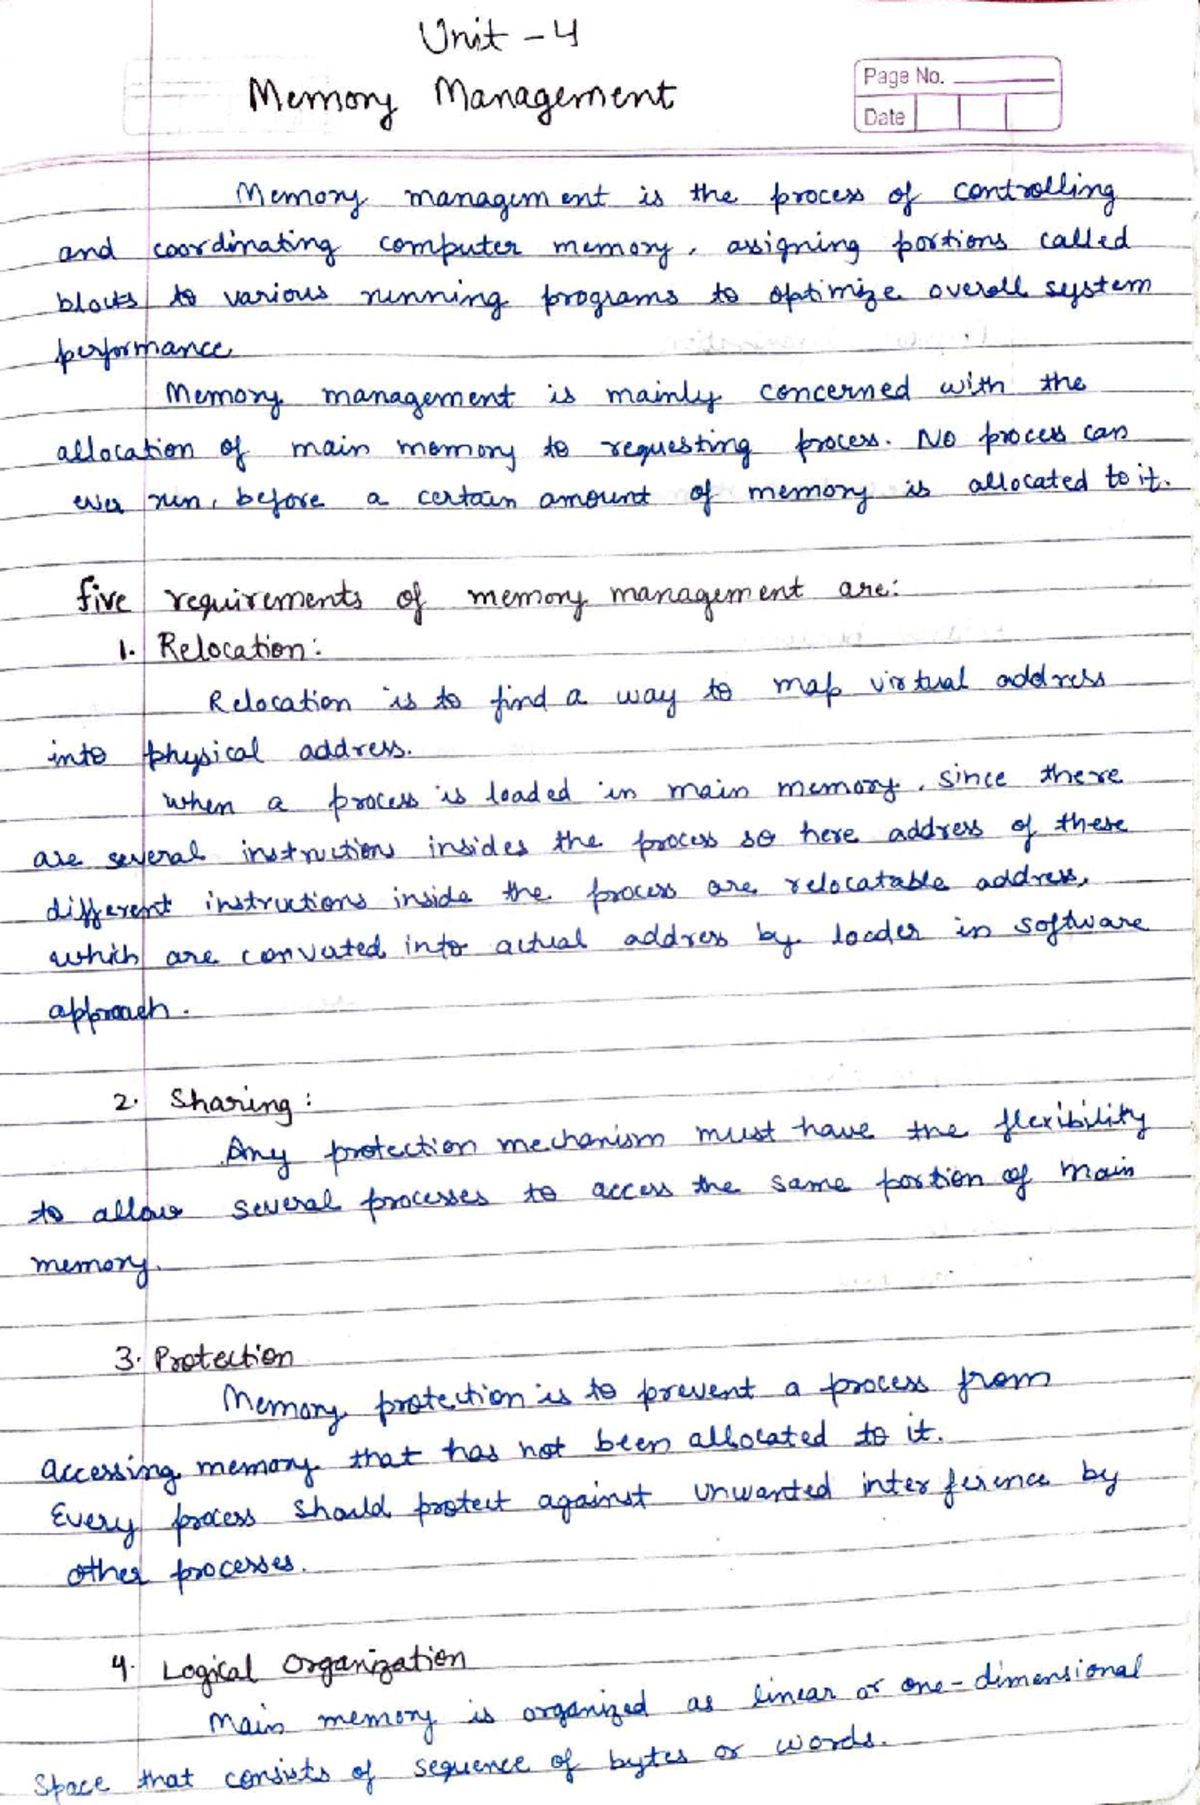 Unit - 4
Memory Management
Page No.
Date
Memory managem ent is the process of controlling
and coordinating computer memory, assigning portions called
blocks to various running programs to optimize overall system
performance
Memory management is mainly concerned with the
allocation of main memory to requesting process. No process can
ever run, before a certain amount of memory is allocated to it.
five requirements of memory management are:
1. Relocation:
Relocation is to find a way to map virtual address
into physical address.
when a process is loaded in main memory, since there
are several instructions insides the process so here address of these
different instructions inside the process are relocatable address,
which are converted into actual address by loader in software
approach.
2. Sharing:
Any protection mechanism must have the flexibility
to allow several processes to access the same portion of main
memory.
3. Protection
Memory protection is to prevent a process from
accessing memory that has not been allocated to it.
Every process should protect against unwanted interference by
other processes.
4. Logical Organization
Main memory is organized as linear or one-dimensional
space that consists of sequence of bytes or words.